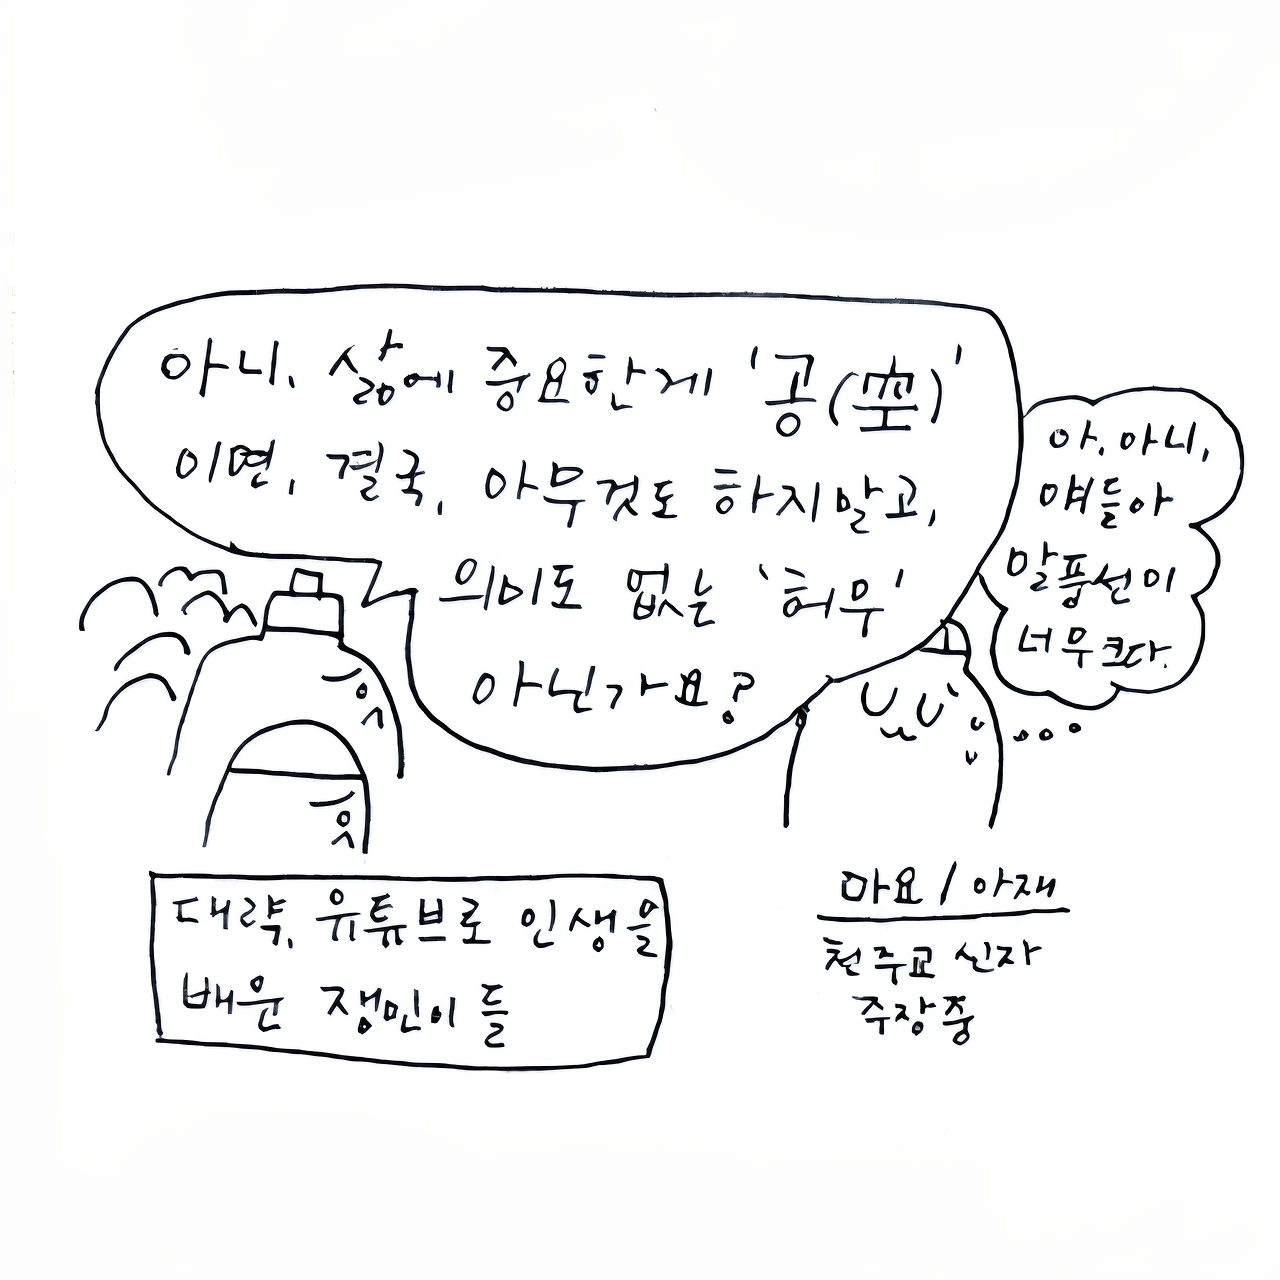 아니, 삶에 중요한게 '공(空)'
이면, 결국, 아무것도 하지말고,
의미도 없는 '허무'
아닌가요?
아, 아니,
얘들아
말풍선이
너무크다.
대략, 유튜브로 인생을
배운 쟁민이들
마요 / 아재
천주교 신자
주장중